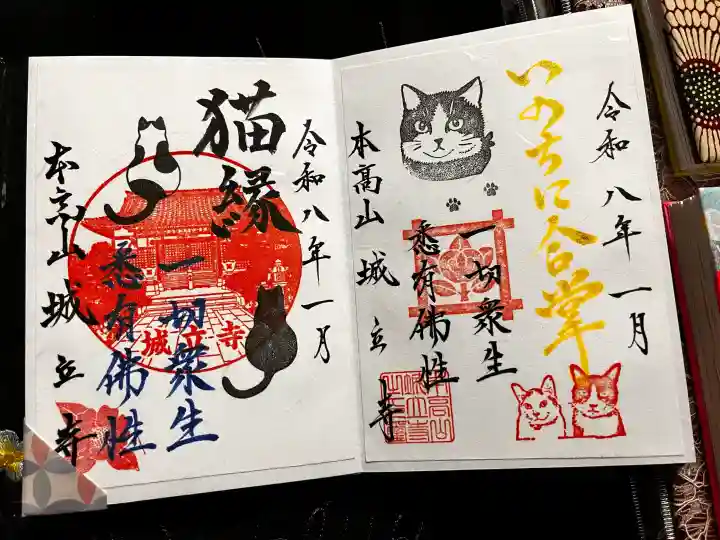 令和八年一月
いのちに合掌
一切衆生
悉有佛性
本高山 城立寺
令和八年一月
猫縁
一切衆生
悉有佛性
城立寺
本高山 城立寺